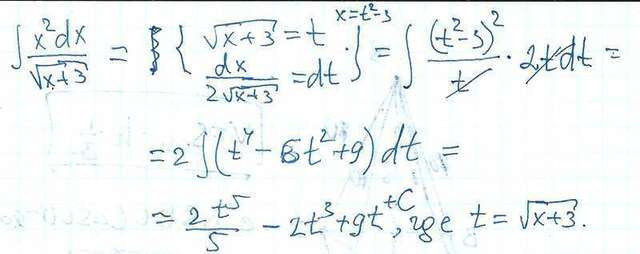 ∫ x²dx/√(x+3) = { √(x+3) = t x=t²-3 dx/(2√(x+3)) = dt } = ∫ (t²-3)²/t · 2t dt =
= 2 ∫ (t⁴ - 6t² + 9) dt =
= 2t⁵/5 - 2t³ + 9t + C, где t = √(x+3).